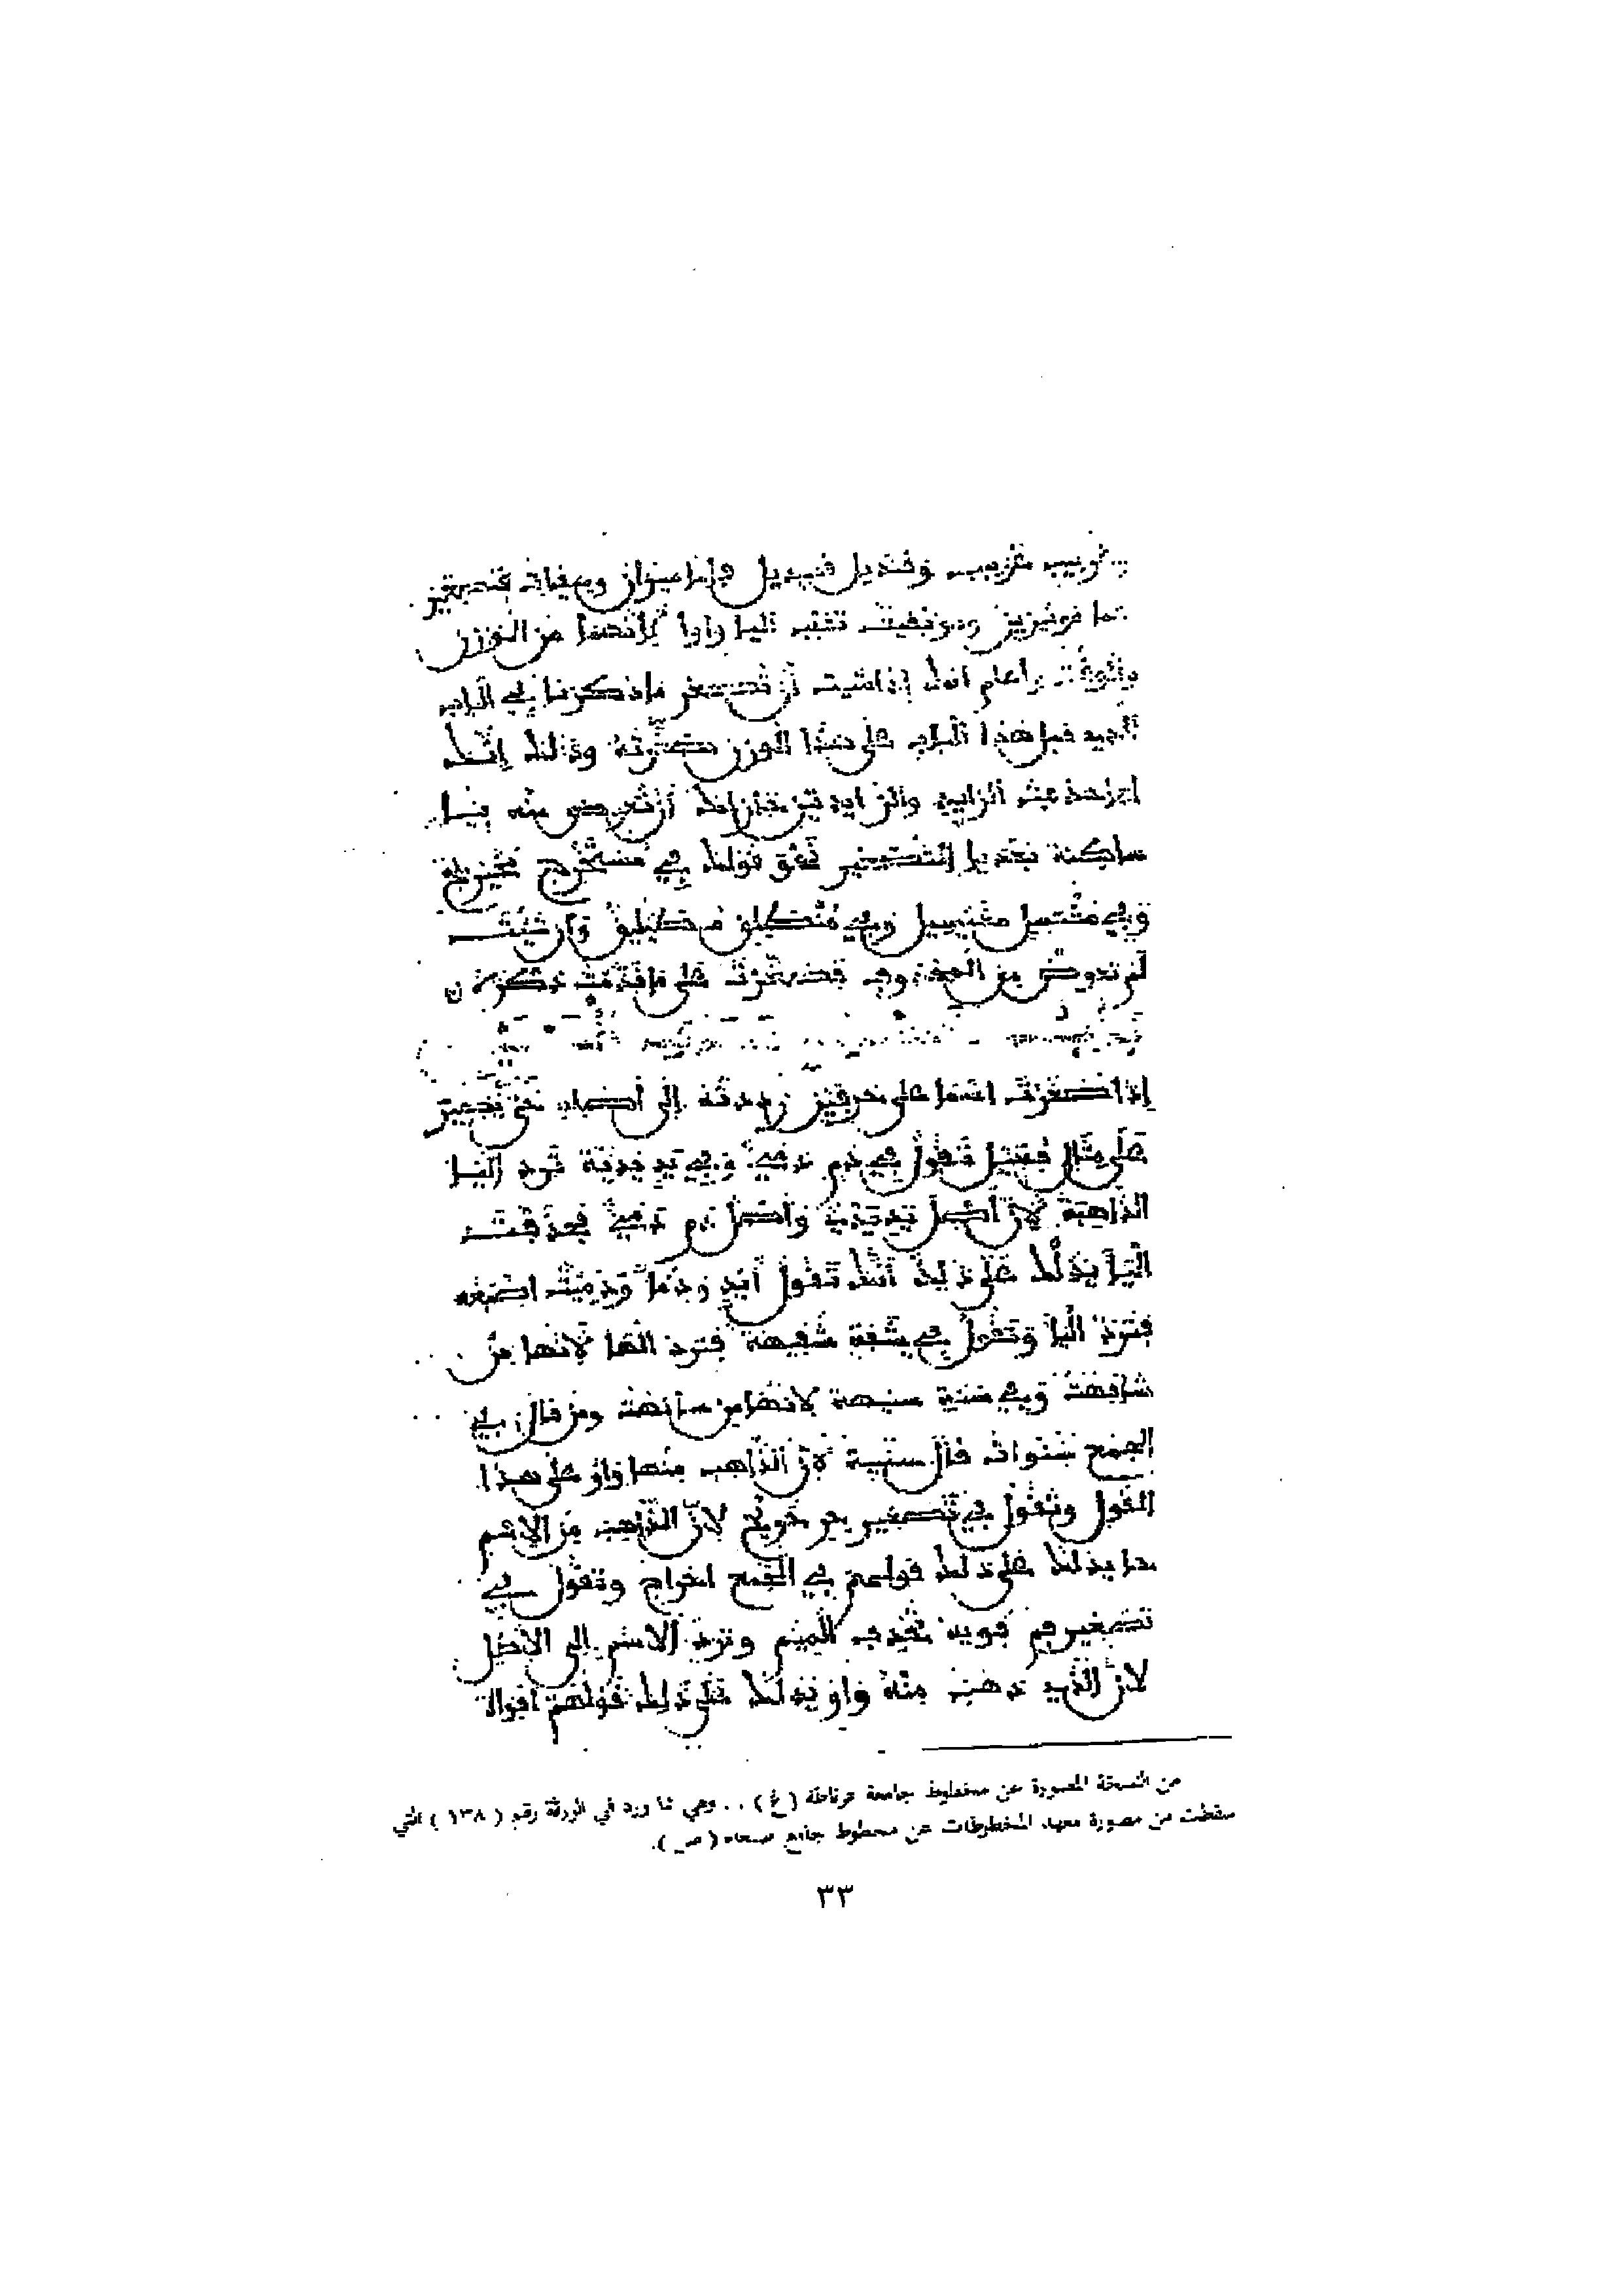 وقنديل قنيديل فاما ميزان وميقات فتصغير
مويزين ومويقيت تقلب اليا واوا لانهما من الوزن
واعلم انك إذا شيت أن تصغر ما ذكرنا في الباب
الذي قبل هذا الباب على هذا الوزن صغرته وذلك إنك
الزايد تين فان لك أن تعوض منه يا
ساكنة بعد يا التصغير نحو قولك في مستخرج مخيريج
وفي مغتسل مغيسيل وفي منطلق مطيليق وإن شيت
لم تعوض من المحذوف فصغرته على ما قدمت ذكره
إذا صغرت اسما على حرفين رددته إلى أصله حتى يصير
على مثال فعيل تقول في دم دمي وفي يد يدية ترد اليا
الذاهبة لأن أصل يد يدي وأصل دم دمي فحذفت
اليا يدلك على ذلك أنك تقول أيد ودما ودميت اصبعه
فترد اليا وتقول في شفة شفيهة فترد الها لانها من
شافهت وفي سنة سنيهة لانها من سانهت ومن قال في
الجمع سنوات قال سنية لأن الذاهب منها واو على هذا
القول وتقول في تصغير حر حريح لأن الذاهب من الاسم
حا يدلك على ذلك قولهم في الجمع احراح وتقول في
تصغير فم فويه تحذف الميم وترد الاسم إلى الأصل
لأن الذي ذهب منه واو يدلك على ذلك قولهم أفواه
من النسخة المصورة عن مخطوط جامعة غرناطة ( غ ) . . وهي ما ورد في الورقة رقم ( ١٣٨ ) التي
سقطت من مصورة معهد المخطوطات عن مخطوط جامع صنعاء ( ص ) .
٣٣